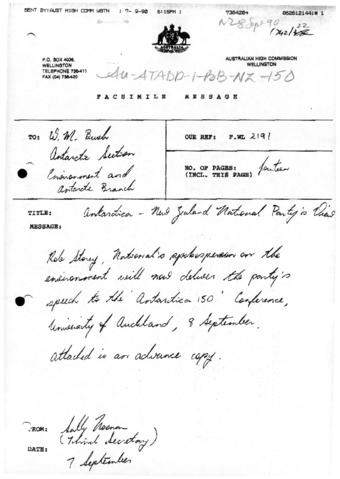 SENT BY:AUST HIGH COMM WGTN ; 7- 9-90 ; 5:15PM ;
N28Sep90
AUSTRALIA
P.O. BOX 4036,
WELLINGTON
TELEPHONE 736-411
FAX (04) 736-420
AUSTRALIAN HIGH COMMISSION
WELLINGTON
Au-ATADD-1-BB-NZ-150
FACSIMILE MESSAGE
TO: W. M. Bush
Antarctic Section
Environment and
Antarctic Branch
OUR REF: P.WL 2191
NO. OF PAGES: fourteen
(INCL. THIS PAGE)
TITLE: Antarctica - New Zealand National Party's View
MESSAGE:
Rob Storey, National's spokesperson on the
environment will now deliver the party's
speech to the 'Antarctica 150' Conference,
University of Auckland, 8 September.
Attached is an advance copy.
FROM: Sally Noonan
(Third Secretary)
DATE:
7 September